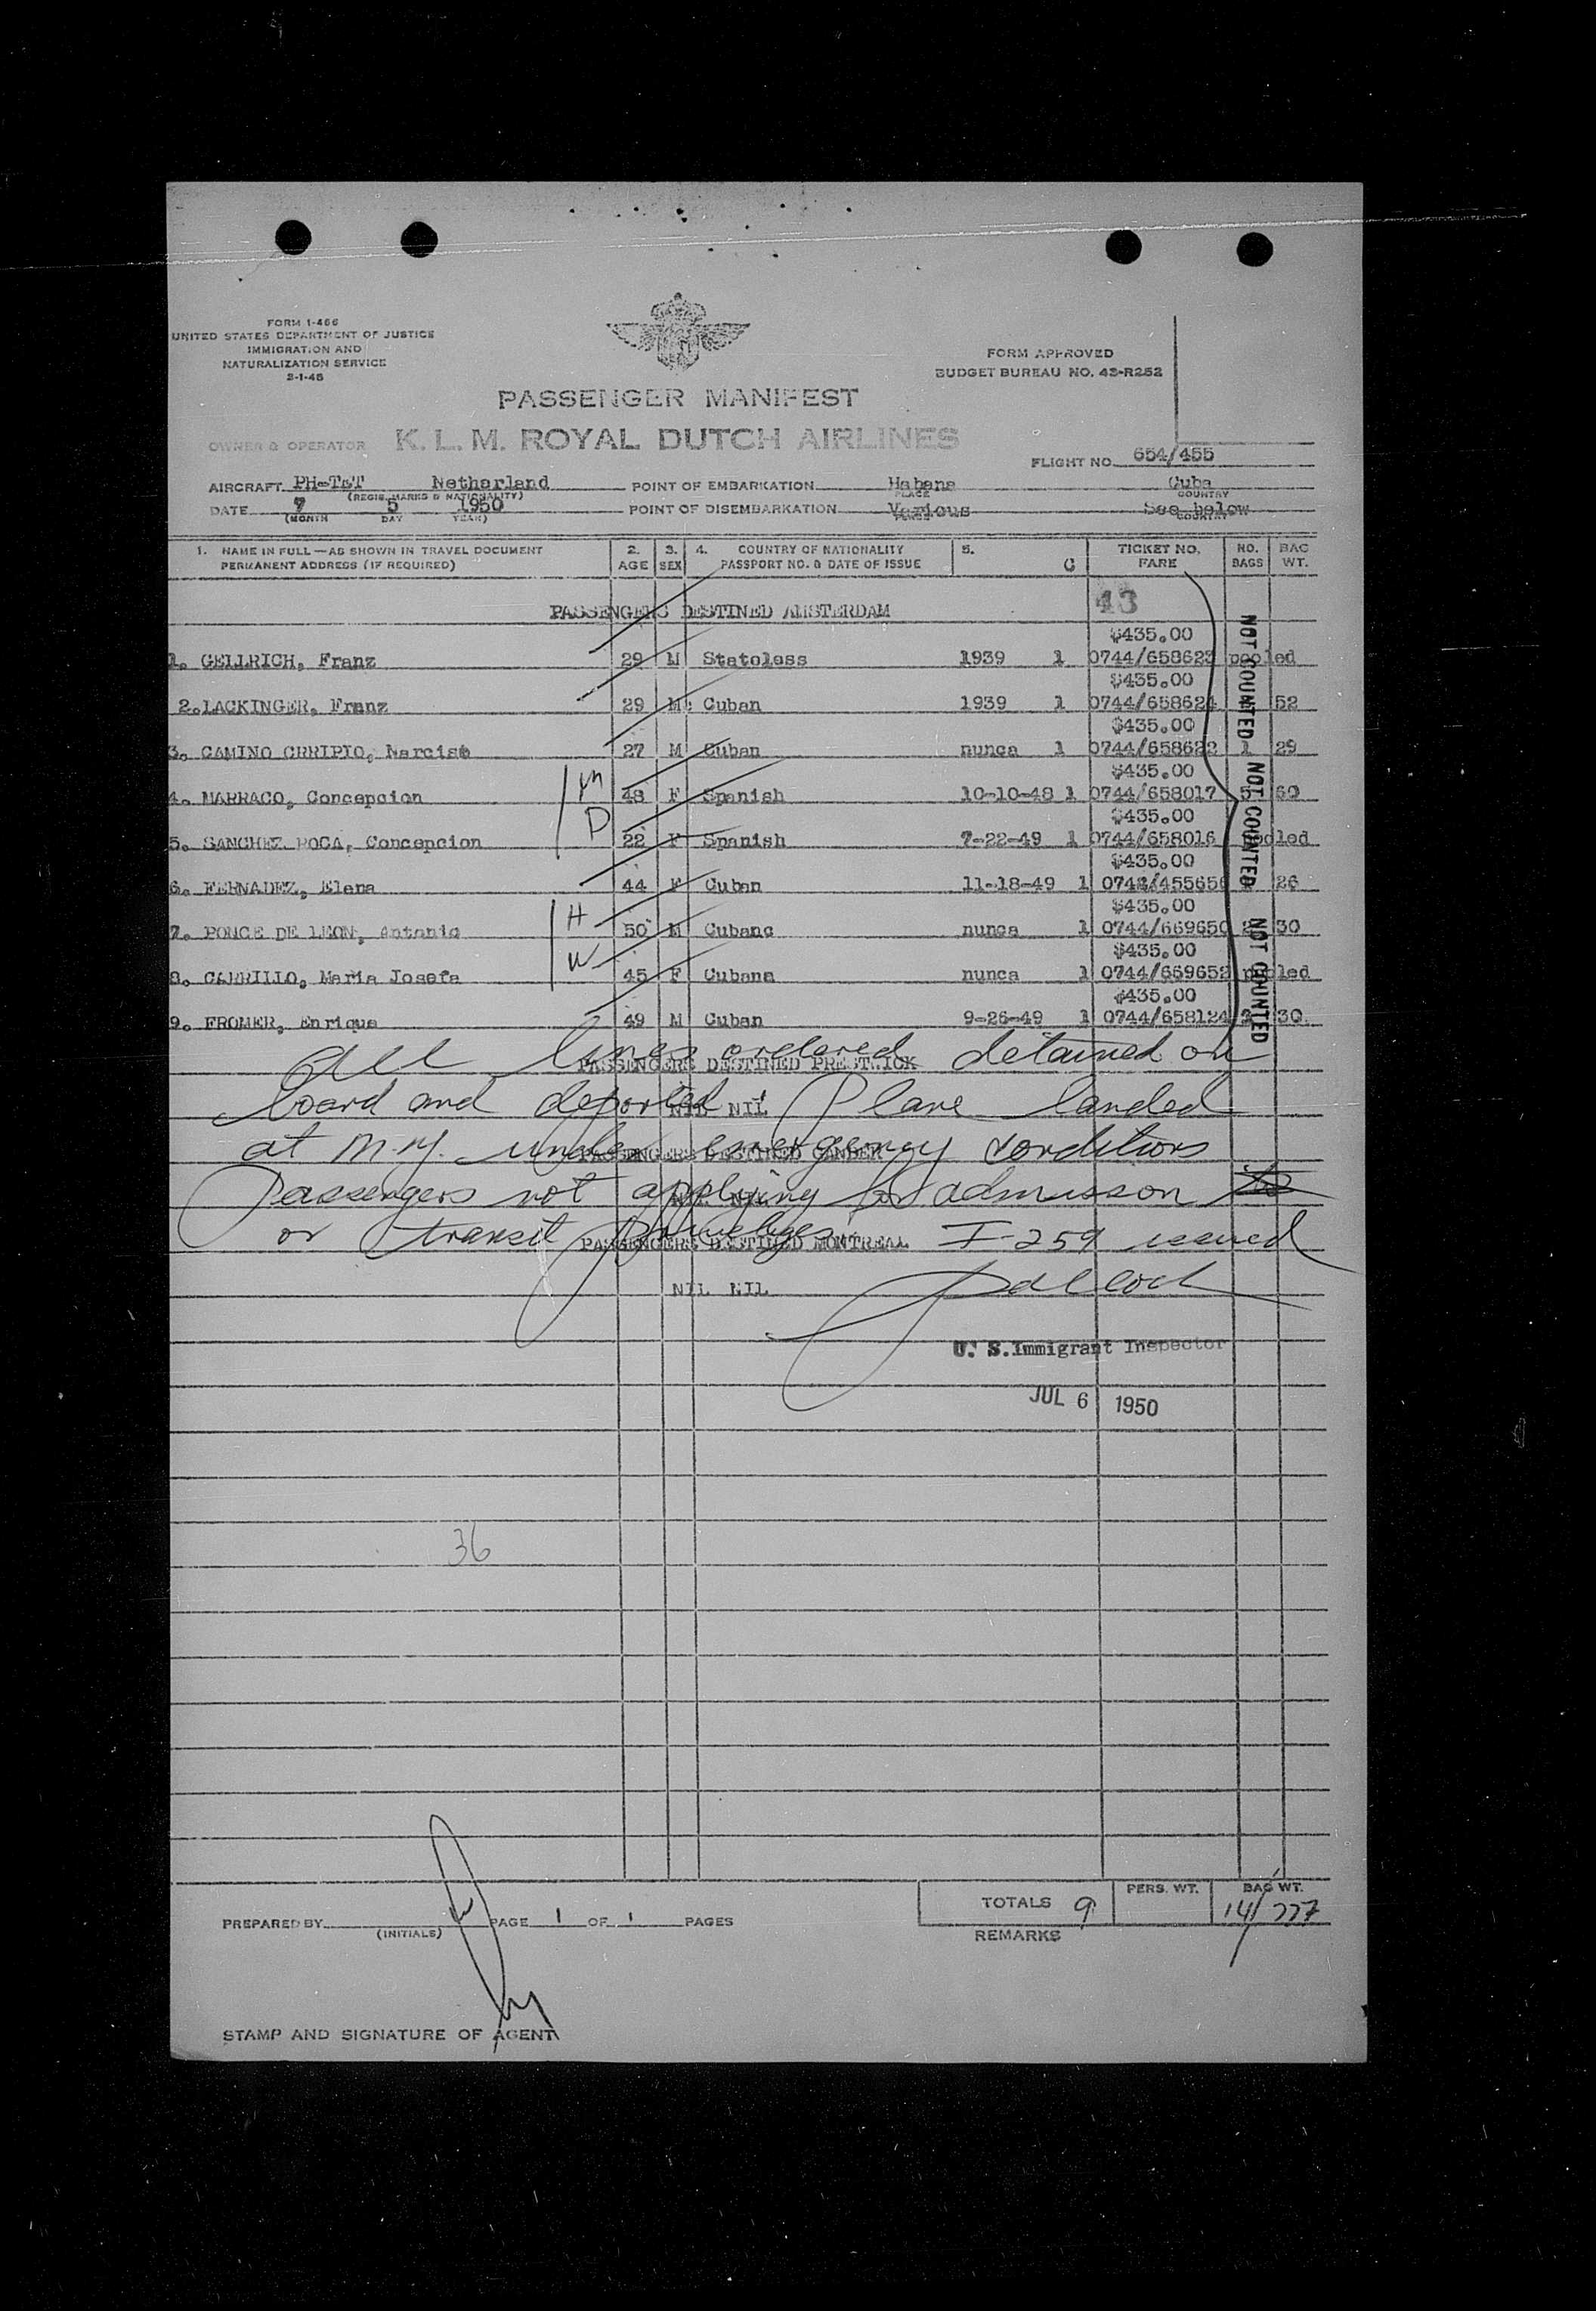 FORM I-466
UNITED STATES DEPARTMENT OF JUSTICE
IMMIGRATION AND
NATURALIZATION SERVICE
2-1-45
FORM APPROVED
BUDGET BUREAU NO. 43-R252
PASSENGER MANIFEST
OWNER & OPERATOR K. L. M. ROYAL DUTCH AIRLINES
FLIGHT NO. 654/455
AIRCRAFT PH-TET Netherland POINT OF EMBARKATION Habana Cuba
(REGIS. MARKS & NATIONALITY) PLACE COUNTRY
DATE 7 5 1950 POINT OF DISEMBARKATION Various See below
(MONTH DAY YEAR) PLACE COUNTRY
1. NAME IN FULL — AS SHOWN IN TRAVEL DOCUMENT 2. 3. 4. COUNTRY OF NATIONALITY 5. TICKET NO. NO. BAG
PERMANENT ADDRESS (IF REQUIRED) AGE SEX PASSPORT NO. & DATE OF ISSUE C FARE BAGS WT.
PASSENGERS DESTINED AMSTERDAM 43
$435.00
1. GELLRICH, Franz 29 M Stateless 1939 1 0744/658623 pooled
$435.00
2. LACKINGER, Franz 29 M Cuban 1939 1 0744/658624 52
$435.00
3. CAMINO CRRIPIO, Narciso 27 M Cuban nunca 1 0744/658622 1 29
$435.00
4. MARRACO, Concepcion M 48 F Spanish 10-10-48 1 0744/658017 5 60
$435.00
5. SANCHEZ ROCA, Concepcion D 22 F Spanish 7-22-49 1 0744/658016 pooled
$435.00
6. FERNADEZ, Elena 44 F Cuban 11-18-49 1 0742/455656 26
$435.00
7. PONCE DE LEON, Antonio H 50 M Cubano nunca 1 0744/669650 2 30
$435.00
8. CARRILLO, Maria Josefa W 45 F Cubana nunca 1 0744/659652 pooled
$435.00
9. FROMER, Enrique 49 M Cuban 9-26-49 1 0744/658124 30
NOT COUNTED NOT COUNTED NOT COUNTED
all lines ordered detained on
PASSENGERS DESTINED PRESTWICK
board and deported. Plane landed
NIL NIL
at N.Y. under emergency conditions
PASSENGERS DESTINED GANDER
Passengers not applying for admission
NIL NIL
or transit privileges. I-259 issued
PASSENGERS DESTINED MONTREAL
NIL NIL
U. S. Immigrant Inspector
JUL 6 1950
36
TOTALS 9 PERS. WT. BAG WT.
14/277
PREPARED BY PAGE 1 OF 1 PAGES
(INITIALS) REMARKS
STAMP AND SIGNATURE OF AGENT